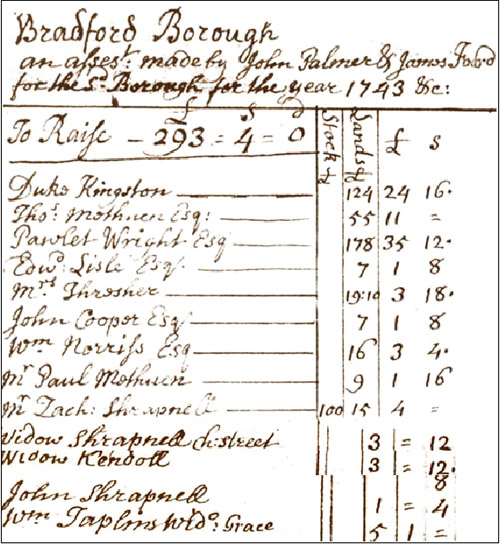 Bradford Borough
an assesst: made by John Palmer & James Foord
for the sd. Borough for the year 1743 &c:
£ s d
To Raise – 293 = 4 = 0
Stock £ Lands £ £ s
Duke Kingston 124 24 16.
Thos: Methuen Esq: 55 11 =
Pawlet Wright Esq 178 35 12.
Edwd: Lisle Esqr. 7 1 8
Mrs Thresher 19:10 3 18.
John Cooper Esqr 7 1 8
Wm Norriss Esq 16 3 4.
Mr Paul Methuen 9 1 16
Mr Zach: Shrapnell 100 15 4 =
Widow Shrapnell Ch: street 3 = 12
Widow Kendoll 3 = 12.
8
John Shrapnell 1 = 4
Wm Taplins Wido: Grace 5 1 =